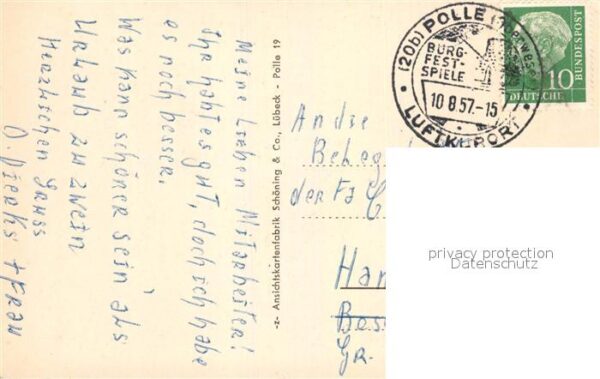 Meine Lieben Mitarbeiter!
Ihr habt es gut, doch ich habe
es noch besser.
Was kann schöner sein als
Urlaub zu zwein
Herzlichen Gruss
O. Dierks + Frau
-z- Ansichtskartenfabrik Schöning & Co., Lübeck - Polle 19
An die
Beleg
der Fa
Han
Bes
Gr.
(20b) POLLE (Weserbergl
BURG-
FEST-
SPIELE
10.8.57.-15
LUFTKURORT
10
DEUTSCHE
BUNDESPOST
privacy protection
Datenschutz